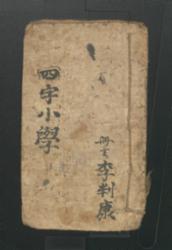 四字小學
冊主 李判康